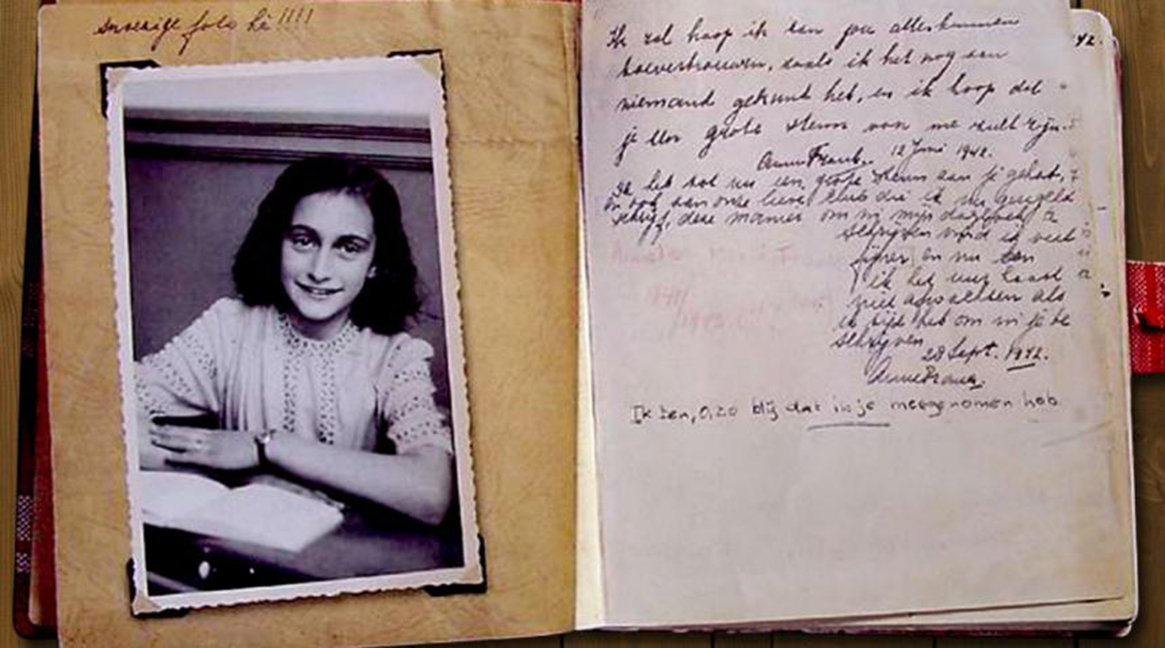 foto
Ik zal hoop ik aan jou alles kunnen
toevertrouwen, zoals ik het nog aan
niemand gekunt heb, en ik hoop dat
je een grote steun van me zult zijn.
Anne Frank. 12 Juni 1942.
Ik heb tot nu een grote steun aan je gehad,
en ook aan onze lieve club die ik nu geregeld
schrijf, deze manier om in mijn dagboek te
schrijven vind ik veel
fijner en nu kan
ik het uur haast
niet afwachten als
ik tijd heb om in je te
schrijven
28 Sept. 1942.
Anne Frank.
Ik ben, O, zo blij dat ik je meegenomen heb
42.